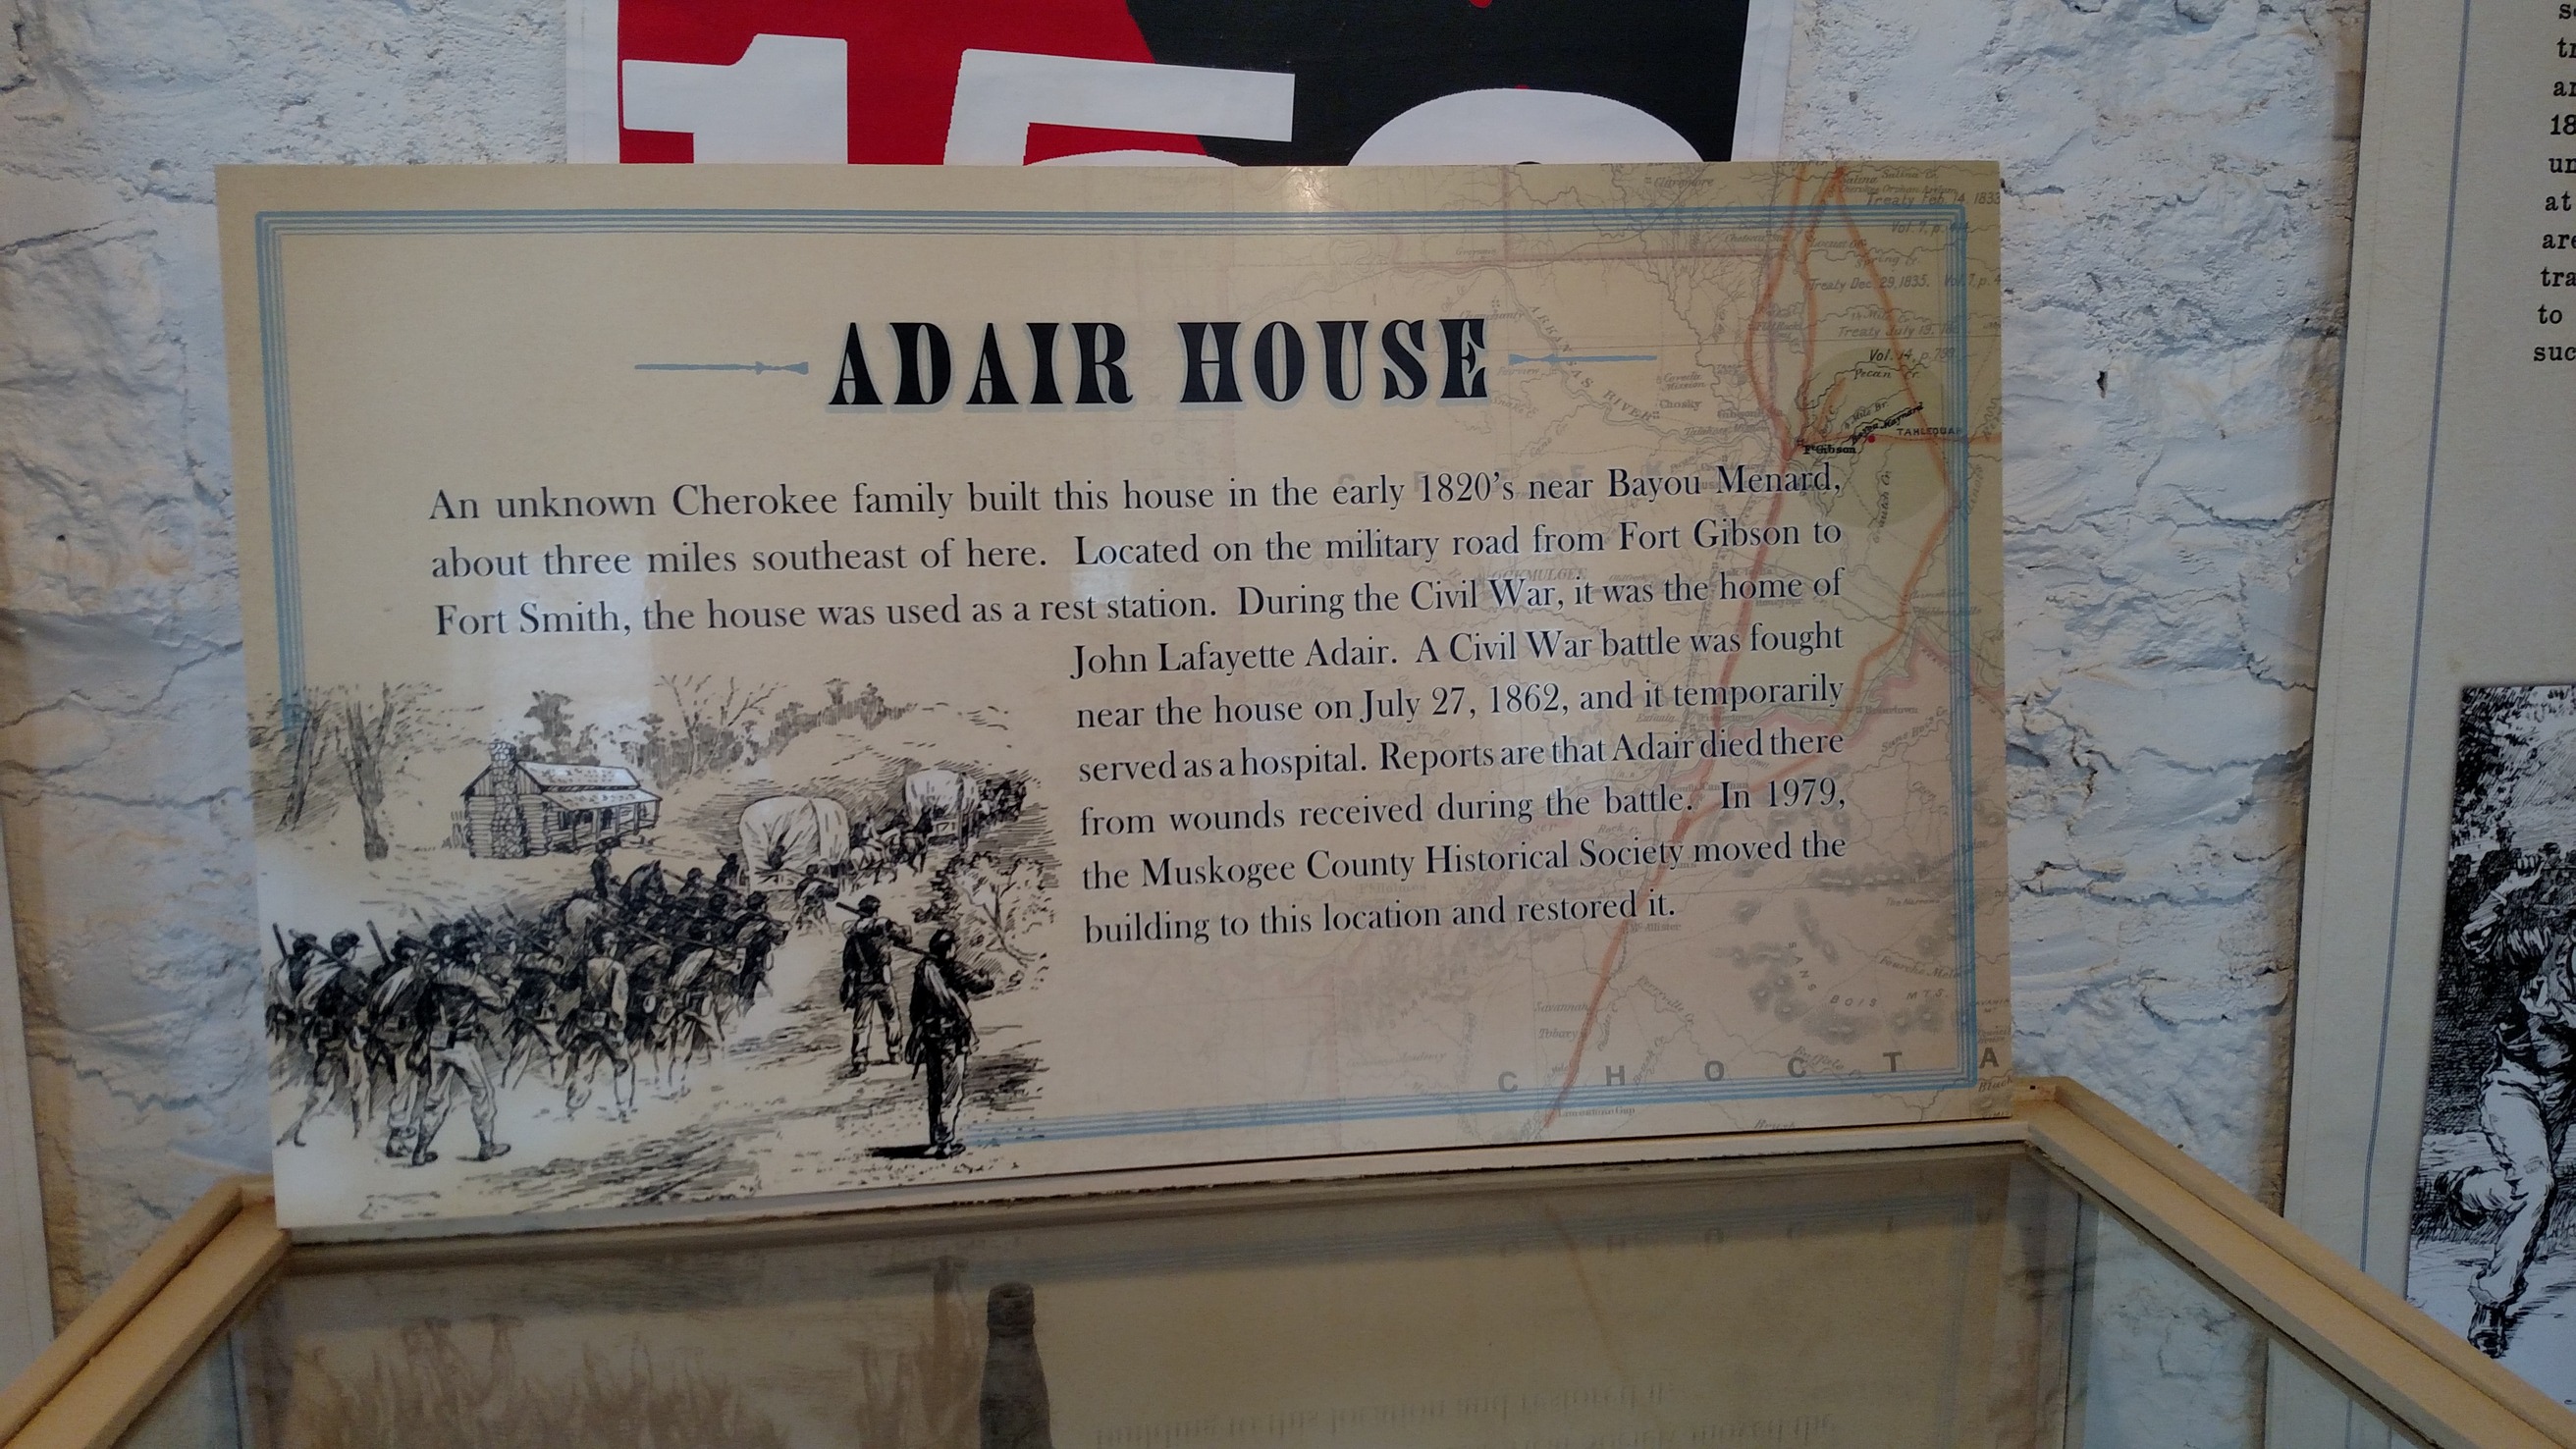 15
ADAIR HOUSE
An unknown Cherokee family built this house in the early 1820's near Bayou Menard,
about three miles southeast of here. Located on the military road from Fort Gibson to
Fort Smith, the house was used as a rest station. During the Civil War, it was the home of
John Lafayette Adair. A Civil War battle was fought
near the house on July 27, 1862, and it temporarily
served as a hospital. Reports are that Adair died there
from wounds received during the battle. In 1979,
the Muskogee County Historical Society moved the
building to this location and restored it.
Salina
Treaty Feb. 14, 1833
Vol. 7, p.
Spring Cr.
Treaty Dec. 29, 1835.
Treaty July 19,
Vol. 14, p. 799
Pecan Cr.
Bayou Maynard
TAHLEQUAH
Ft Gibson
ARKANSAS RIVER
OCKMULGEE
SANS BOIS MTS.
Savannah
Tobacy
CHOCTA
18
at
are
tra
to
suc